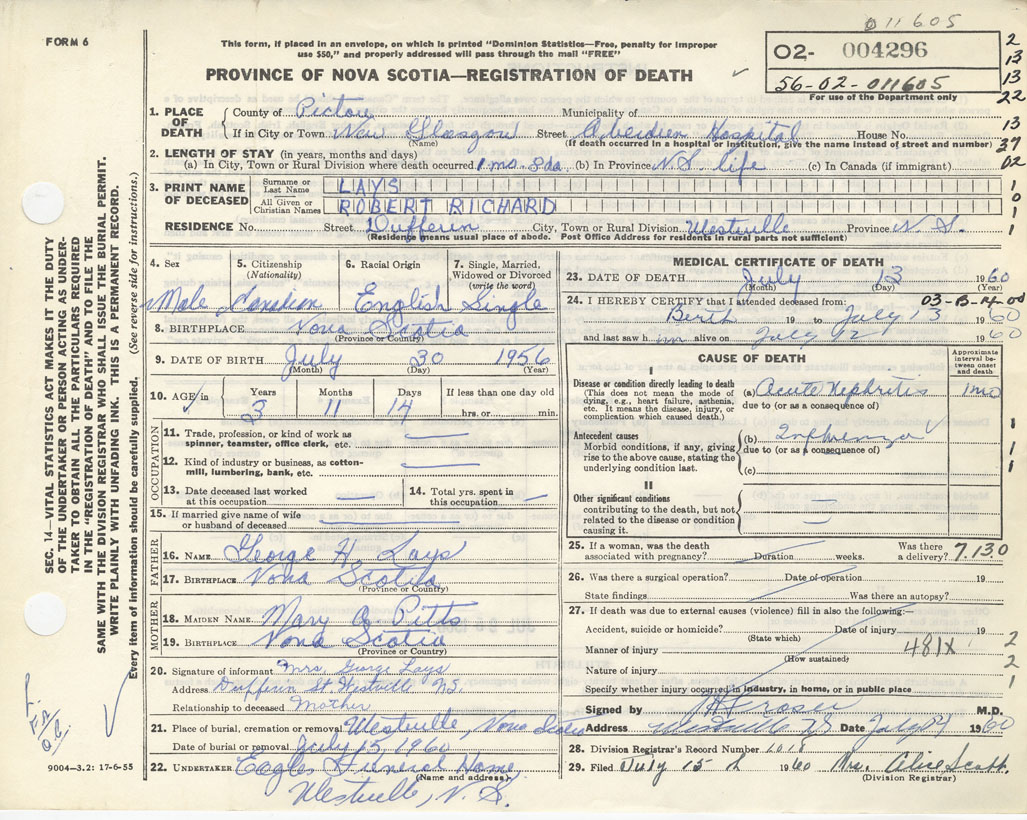 011605
FORM 6
This form, if placed in an envelope, on which is printed "Dominion Statistics—Free, penalty for improper
use $50," and properly addressed will pass through the mail "FREE"
PROVINCE OF NOVA SCOTIA—REGISTRATION OF DEATH
02- 004296
56-02-011605
For use of the Department only
2
13
13
22
13
27
02
1
0
1
1. PLACE OF DEATH
County of Pictou Municipality of
If in City or Town New Glasgow Street Aberdeen Hospital House No.
(Name) (If death occurred in a hospital or institution, give the name instead of street and number)
2. LENGTH OF STAY (in years, months and days)
(a) In City, Town or Rural Division where death occurred 1 mo. 8 da (b) In Province N.S. life (c) In Canada (if immigrant)
3. PRINT NAME OF DECEASED
Surname or Last Name LAYS
All Given or Christian Names ROBERT RICHARD
RESIDENCE No. Street Dufferin City, Town or Rural Division Westville Province N.S.
(Residence means usual place of abode. Post Office Address for residents in rural parts not sufficient)
4. Sex Male
5. Citizenship (Nationality) Canadian
6. Racial Origin English
7. Single, Married, Widowed or Divorced (write the word) Single
8. BIRTHPLACE Nova Scotia
(Province or Country)
9. DATE OF BIRTH July 30 1956
(Month) (Day) (Year)
10. AGE in Years Months Days If less than one day old
3 11 14 hrs. or min.
OCCUPATION
11. Trade, profession, or kind of work as
spinner, teamster, office clerk, etc.
12. Kind of industry or business, as cotton-
mill, lumbering, bank, etc.
13. Date deceased last worked
at this occupation
14. Total yrs. spent in
this occupation
15. If married give name of wife
or husband of deceased
FATHER
16. NAME George H. Lays
17. BIRTHPLACE Nova Scotia
(Province or Country)
MOTHER
18. MAIDEN NAME Mary A. Pitts
19. BIRTHPLACE Nova Scotia
(Province or Country)
20. Signature of informant Mrs. George Lays
Address Dufferin St. Westville N.S.
Relationship to deceased Mother
21. Place of burial, cremation or removal Westville, Nova Scotia
Date of burial or removal July 15, 1960
22. UNDERTAKER Eagles Funeral Home,
(Name and address)
Westville, N.S.
MEDICAL CERTIFICATE OF DEATH
23. DATE OF DEATH July 13 1960
(Month) (Day)
24. I HEREBY CERTIFY that I attended deceased from:
Berth 19 to July 13 1960
and last saw him alive on July 12 1960
CAUSE OF DEATH
Approximate interval between onset and death
I
Disease or condition directly leading to death
(This does not mean the mode of
dying, e.g., heart failure, asthenia,
etc. It means the disease, injury, or
complication which caused death.)
(a) Acute Nephritis 1 mo
due to (or as a consequence of)
Antecedent causes
Morbid conditions, if any, giving
rise to the above cause, stating the
underlying condition last.
(b) Influenza
due to (or as a consequence of)
(c)
1
1
1
II
Other significant conditions
contributing to the death, but not
related to the disease or condition
causing it.
25. If a woman, was the death
associated with pregnancy? Duration weeks. Was there a delivery? 7.130
26. Was there a surgical operation? Date of operation 19
State findings Was there an autopsy?
27. If death was due to external causes (violence) fill in also the following:—
Accident, suicide or homicide? Date of injury 19
(State which)
Manner of injury 481X
(How sustained)
Nature of injury
2
2
1
Specify whether injury occurred in industry, in home, or in public place
Signed by Fraser M.D.
Address Westville NS Date July 14 1960
28. Division Registrar's Record Number 1018
29. Filed July 15th 1960 Mrs Alice Scott
(Division Registrar)
SEC. 14—VITAL STATISTICS ACT MAKES IT THE DUTY
OF THE UNDERTAKER OR PERSON ACTING AS UNDER-
TAKER TO OBTAIN ALL THE PARTICULARS REQUIRED
IN THE "REGISTRATION OF DEATH" AND TO FILE THE
SAME WITH THE DIVISION REGISTRAR WHO SHALL ISSUE THE BURIAL PERMIT.
WRITE PLAINLY WITH UNFADING INK. THIS IS A PERMANENT RECORD.
Every item of information should be carefully supplied. (See reverse side for instructions.)
9004—3.2: 17-6-55